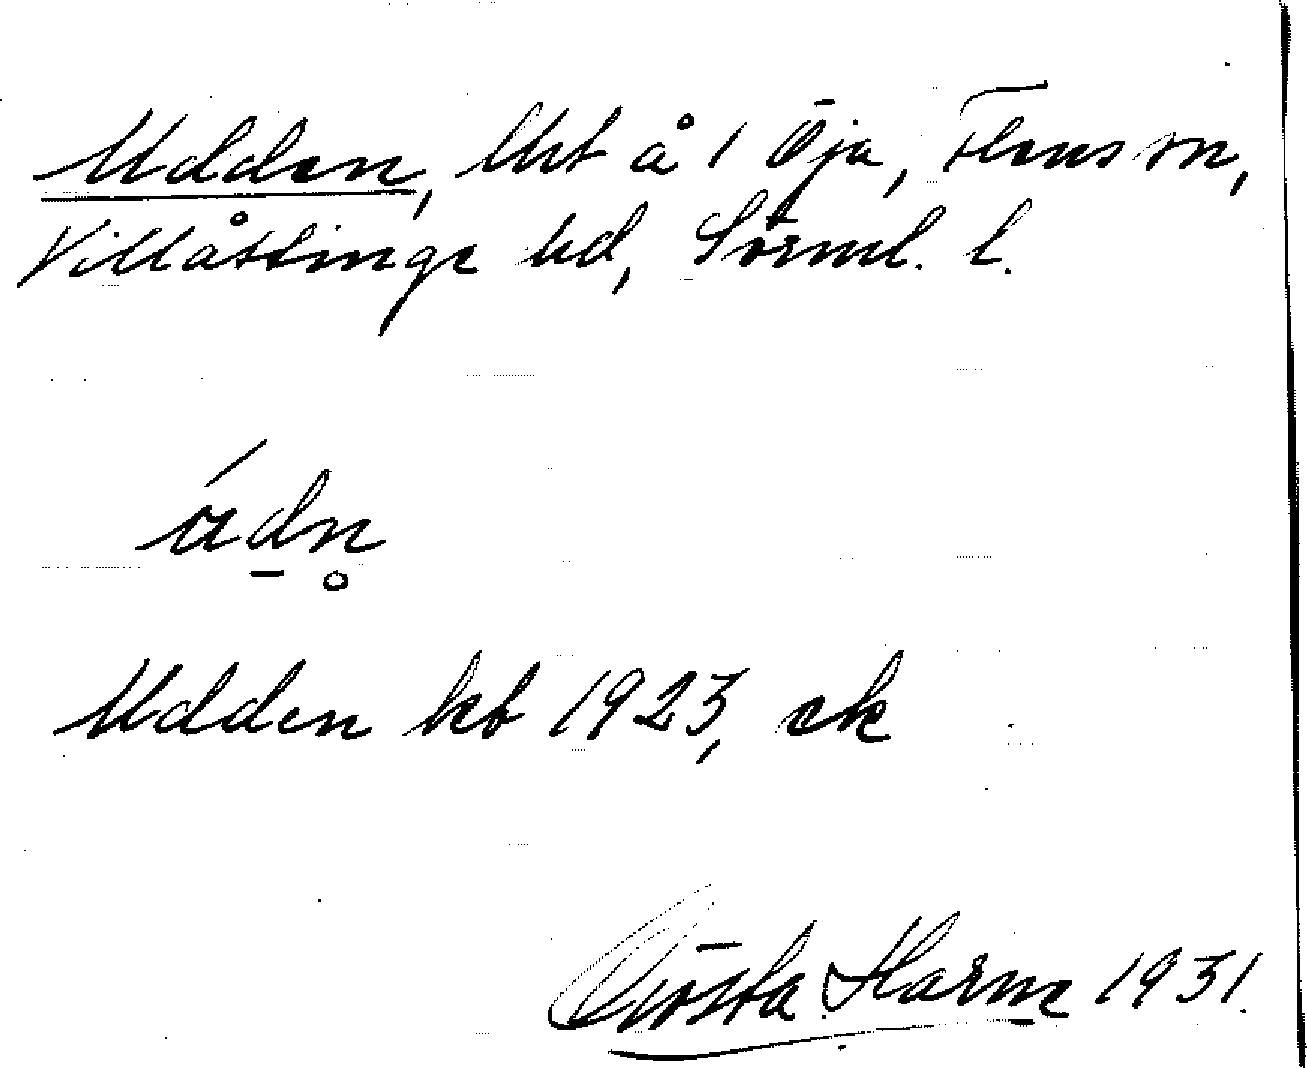 Udden, lht å 1 Öja, Flens sn,
Villåttinge hd, Sörml. l.
ádn
Udden kb 1923, ek
Gösta Harme 1931.